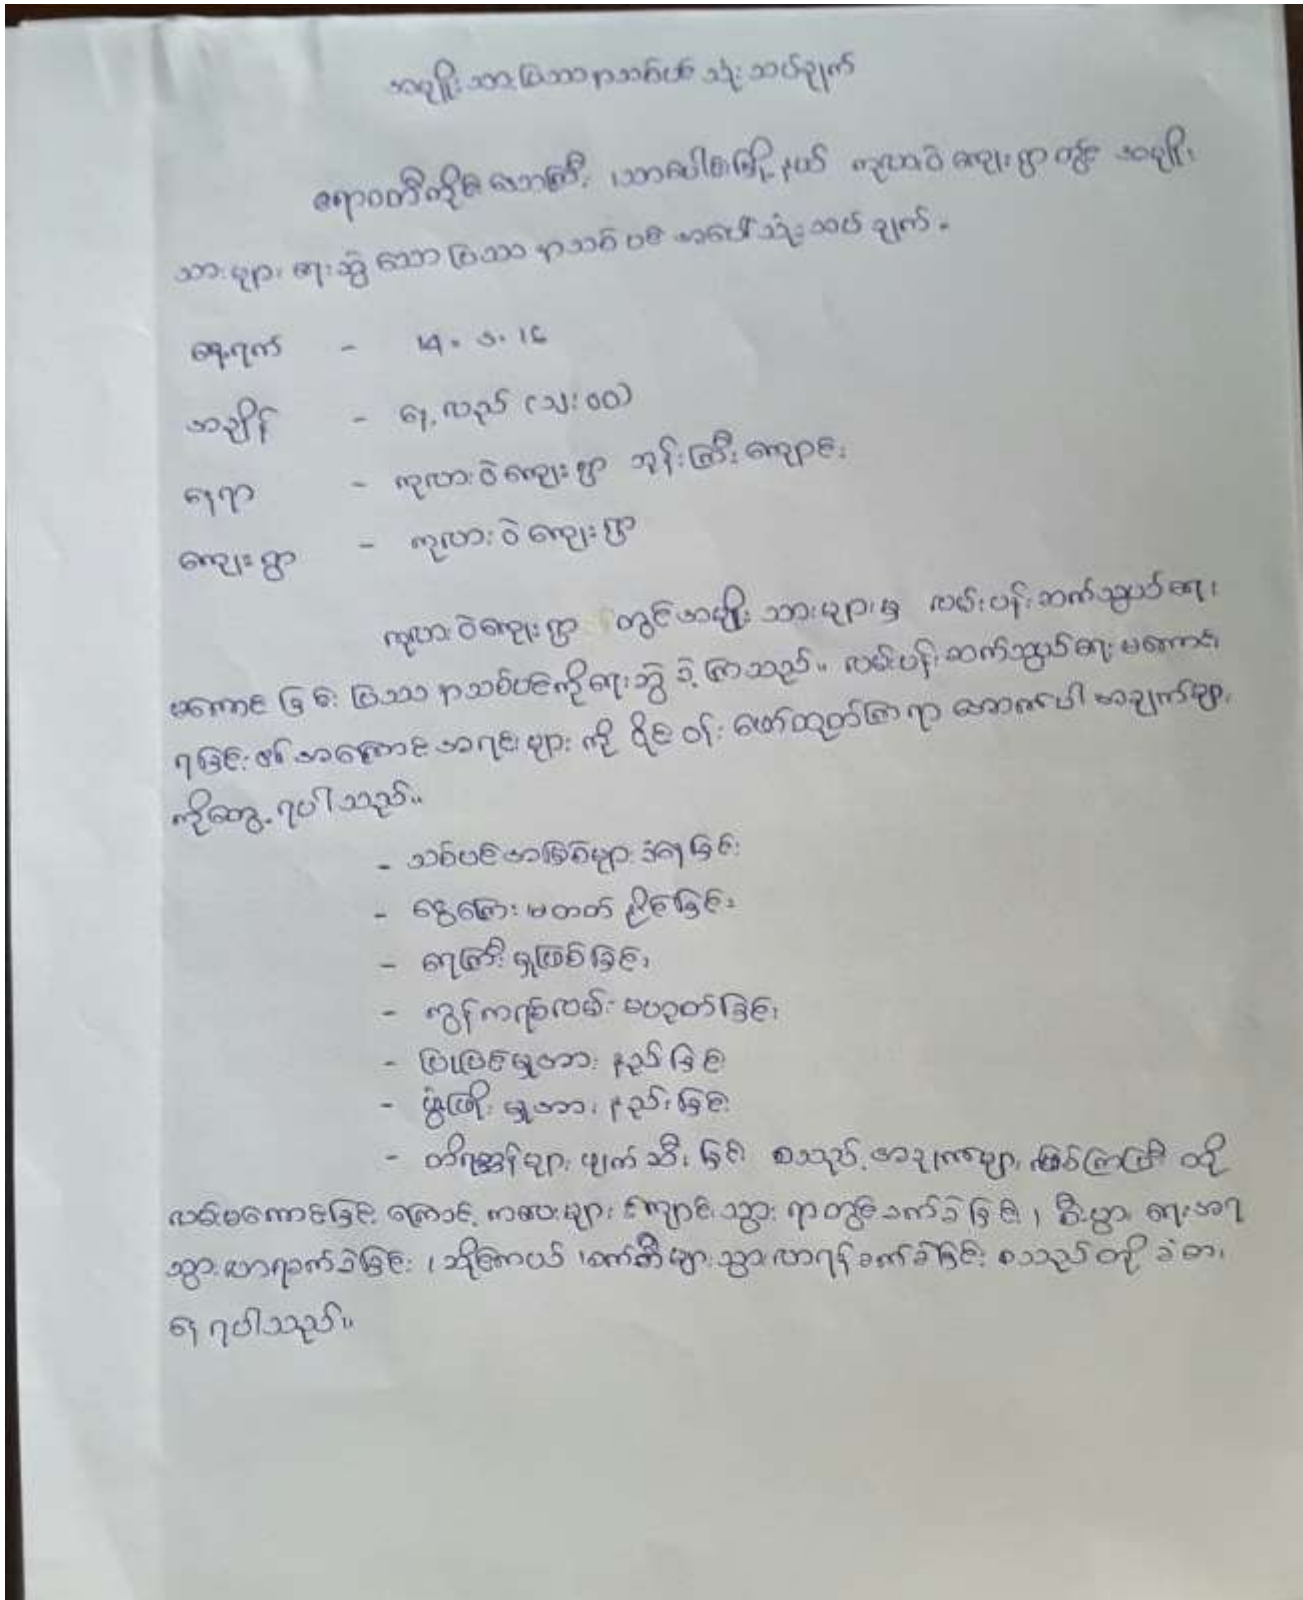 အမျိုးသားပြဿနာသစ်ပင် သုံးသပ်ချက်
ဧရာဝတီတိုင်းဒေသကြီး၊ သာပေါင်းမြို့နယ် ကုလားဝဲကျေးရွာတွင် အမျိုး
သားများ ရေးဆွဲသော ပြဿနာသစ်ပင်အပေါ်သုံးသပ်ချက်။
နေ့ရက် - ၊၄. ၁. ၊၄
အချိန် - နေ့လည် (၁း၀၀)
နေရာ - ကုလားဝဲကျေးရွာ ဘုန်းကြီးကျောင်း
ကျေးရွာ - ကုလားဝဲကျေးရွာ
ကုလားဝဲကျေးရွာ တွင်အမျိုးသားများမှ လမ်းပန်းဆက်သွယ်ရေး
မကောင်းခြင်း ပြဿနာသစ်ပင်ကိုရေးဆွဲခဲ့ကြသည်။ လမ်းပန်းဆက်သွယ်ရေးမကောင်း
ရခြင်း၏အကြောင်းအရင်းများကို ဝိုင်းဝန်းဖော်ထုတ်ကြရာ အောက်ပါအချက်များ
ကိုတွေ့ရပါသည်။
- သစ်ပင်အမြစ်များခံနေခြင်း
- ငွေကြေးမတတ်နိုင်ခြင်း
- ရေကြီးမှုဖြစ်ခြင်း
- ကွန်ကရစ်လမ်းမဟုတ်ခြင်း
- ပြုပြင်မှုအားနည်းခြင်း
- ဖွံ့ဖြိုးမှုအားနည်းခြင်း
- တိရစ္ဆာန်များဖျက်ဆီးခြင်း စသည့်အချက်များဖြစ်ကြပြီး ထို
လမ်းမကောင်းခြင်းကြောင့်ကလေးများကျောင်းသွားရာတွင်ခက်ခဲခြင်း၊ စီးပွားရေးအရ
သွားလာရခက်ခဲခြင်း၊ ဘိုးဘွားများသွားလာရန်ခက်ခဲခြင်း စသည်တို့ခံစား
နေရပါသည်။